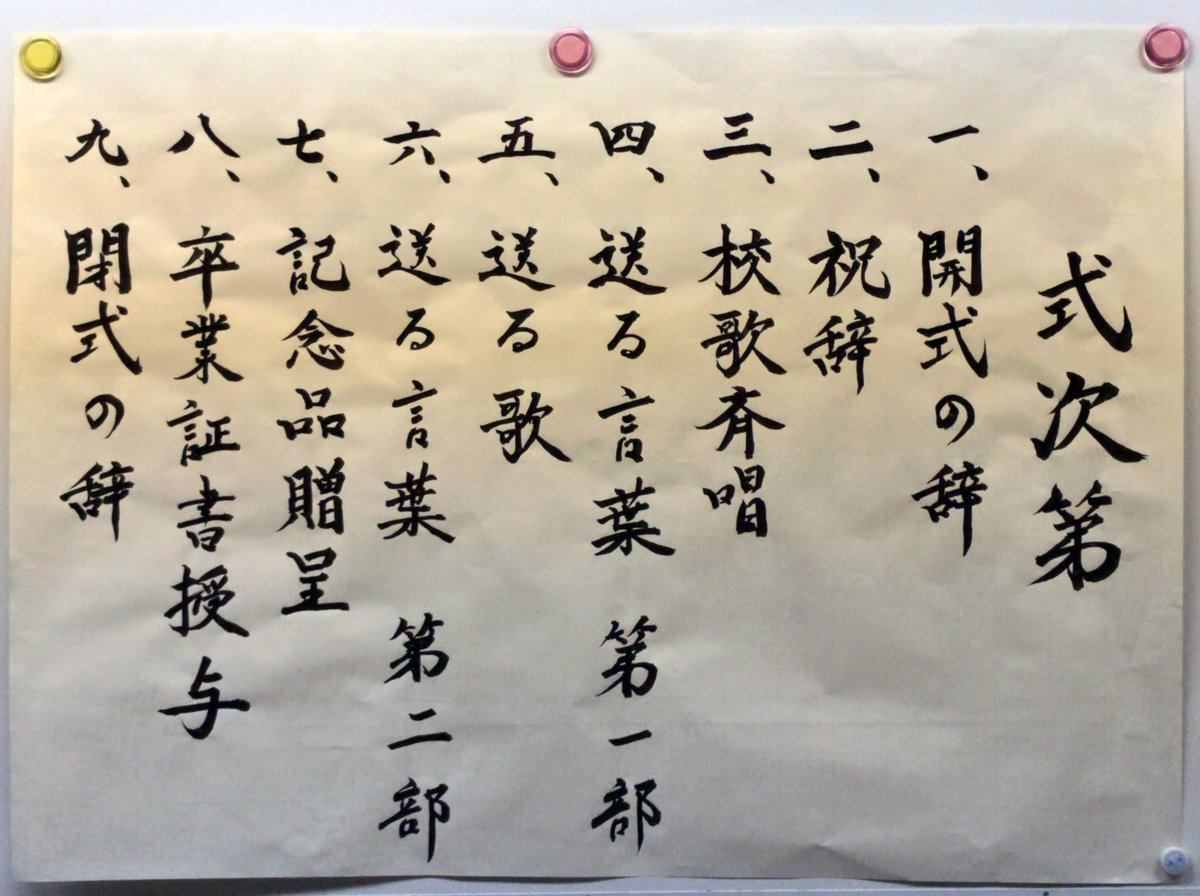 式次第
一、開式の辞
二、祝辞
三、校歌斉唱
四、送る言葉　第一部
五、送る歌
六、送る言葉　第二部
七、記念品贈呈
八、卒業証書授与
九、閉式の辞